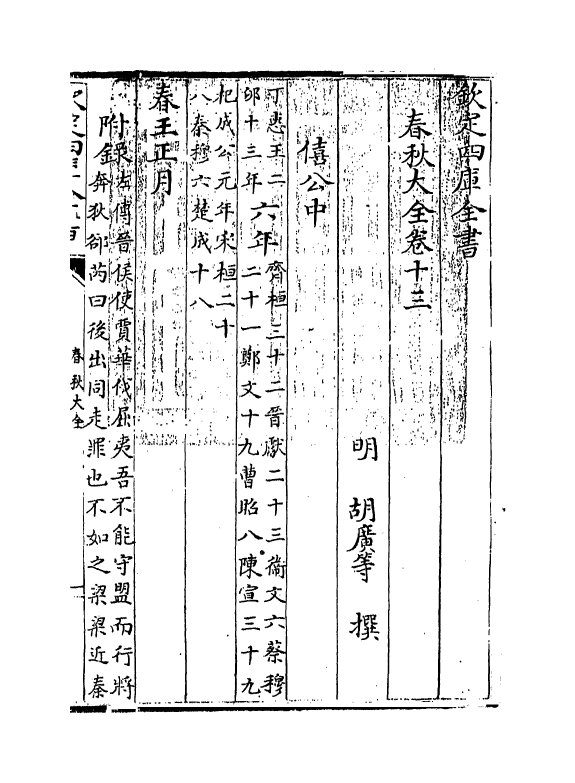 欽定四庫全書
春秋大全卷十三
明 胡廣等 撰
僖公中
丁惠王二
卯十三年
六年
齊桓三十二晉獻二十三衞文六蔡穆
二十一鄭文十九曹昭八陳宣三十九
杞成公元年宋桓二十
八秦穆六楚成十八
春王正月
附錄
左傳晉侯使賈華伐屈夷吾不能守盟而行將
奔狄郤芮曰後出同走罪也不如之梁梁近秦
春秋大全
一